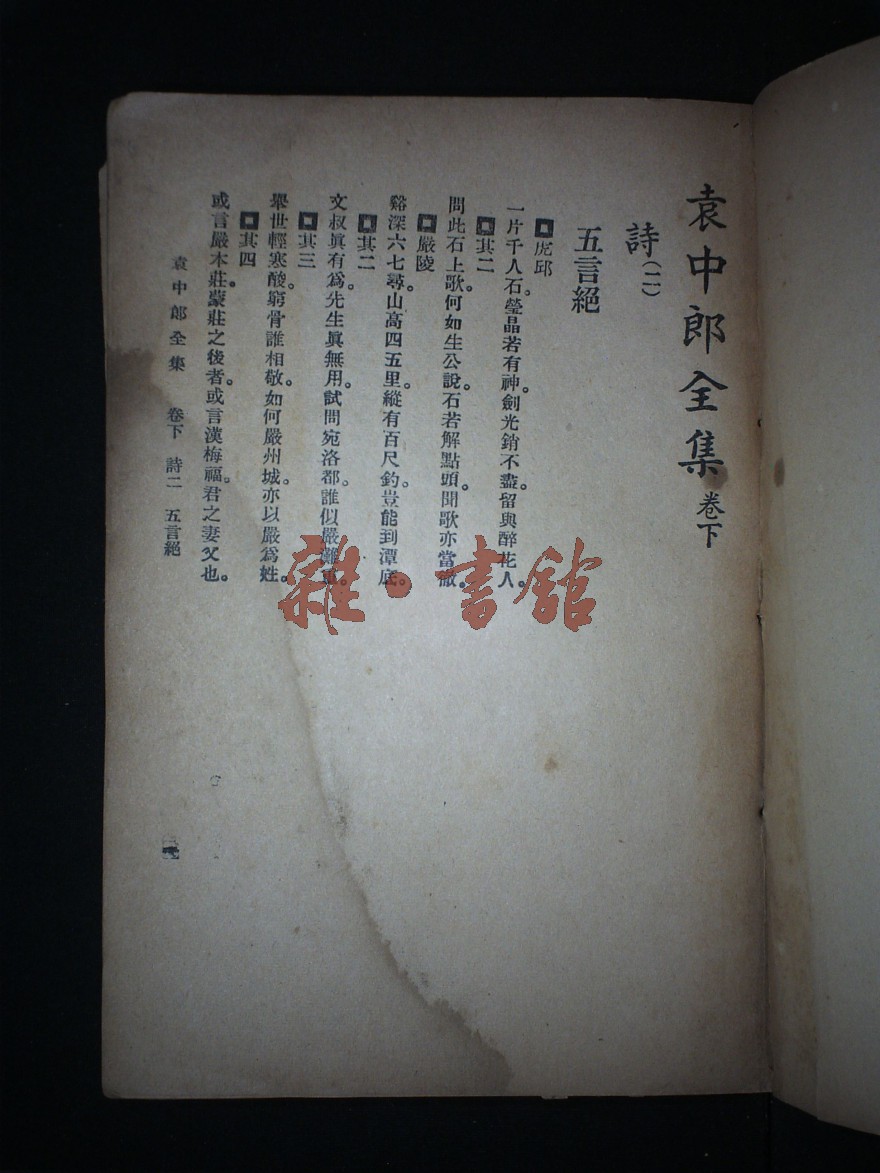 袁中郎全集 卷下
詩(二)
五言絕
虎邱
一片千人石。瑩晶若有神。劍光銷不盡。留與醉花人。
其二
問此石上歌。何如生公說。石若解點頭。聞歌亦當徹。
嚴陵
谿深六七尋。山高四五里。縱有百尺釣。豈能到潭底。
其二
文叔眞有爲。先生眞無用。試問宛洛都。誰似嚴灘重。
其三
舉世輕寒酸。窮骨誰相敬。如何嚴州城。亦以嚴爲姓。
其四
或言嚴本莊。蒙莊之後者。或言漢梅福。君之妻父也。
袁中郎全集 卷下 詩二 五言絕
一
雜·書館